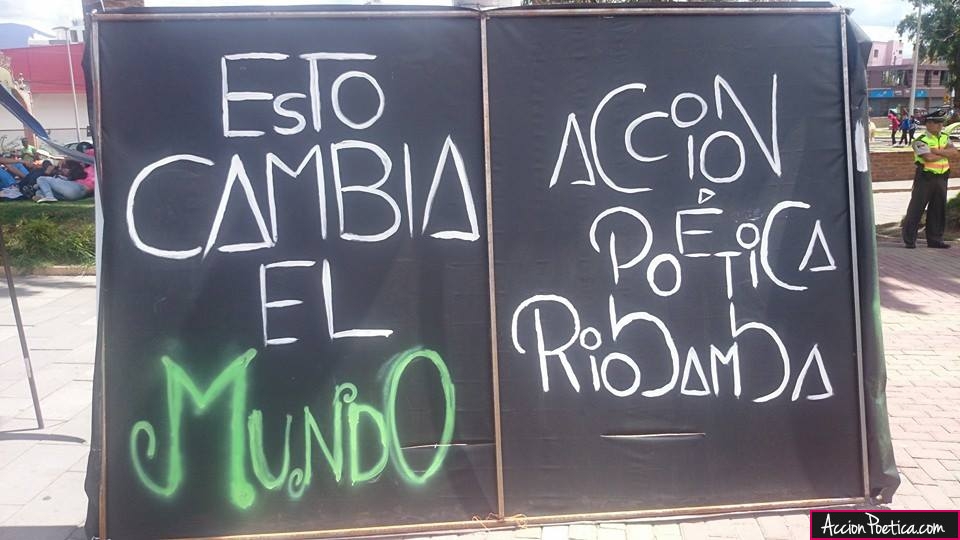 EsTO
CAMBIA
EL
MUNDO
ACCiÓN
POÉTiCA
RiobambA
AccionPoetica.com